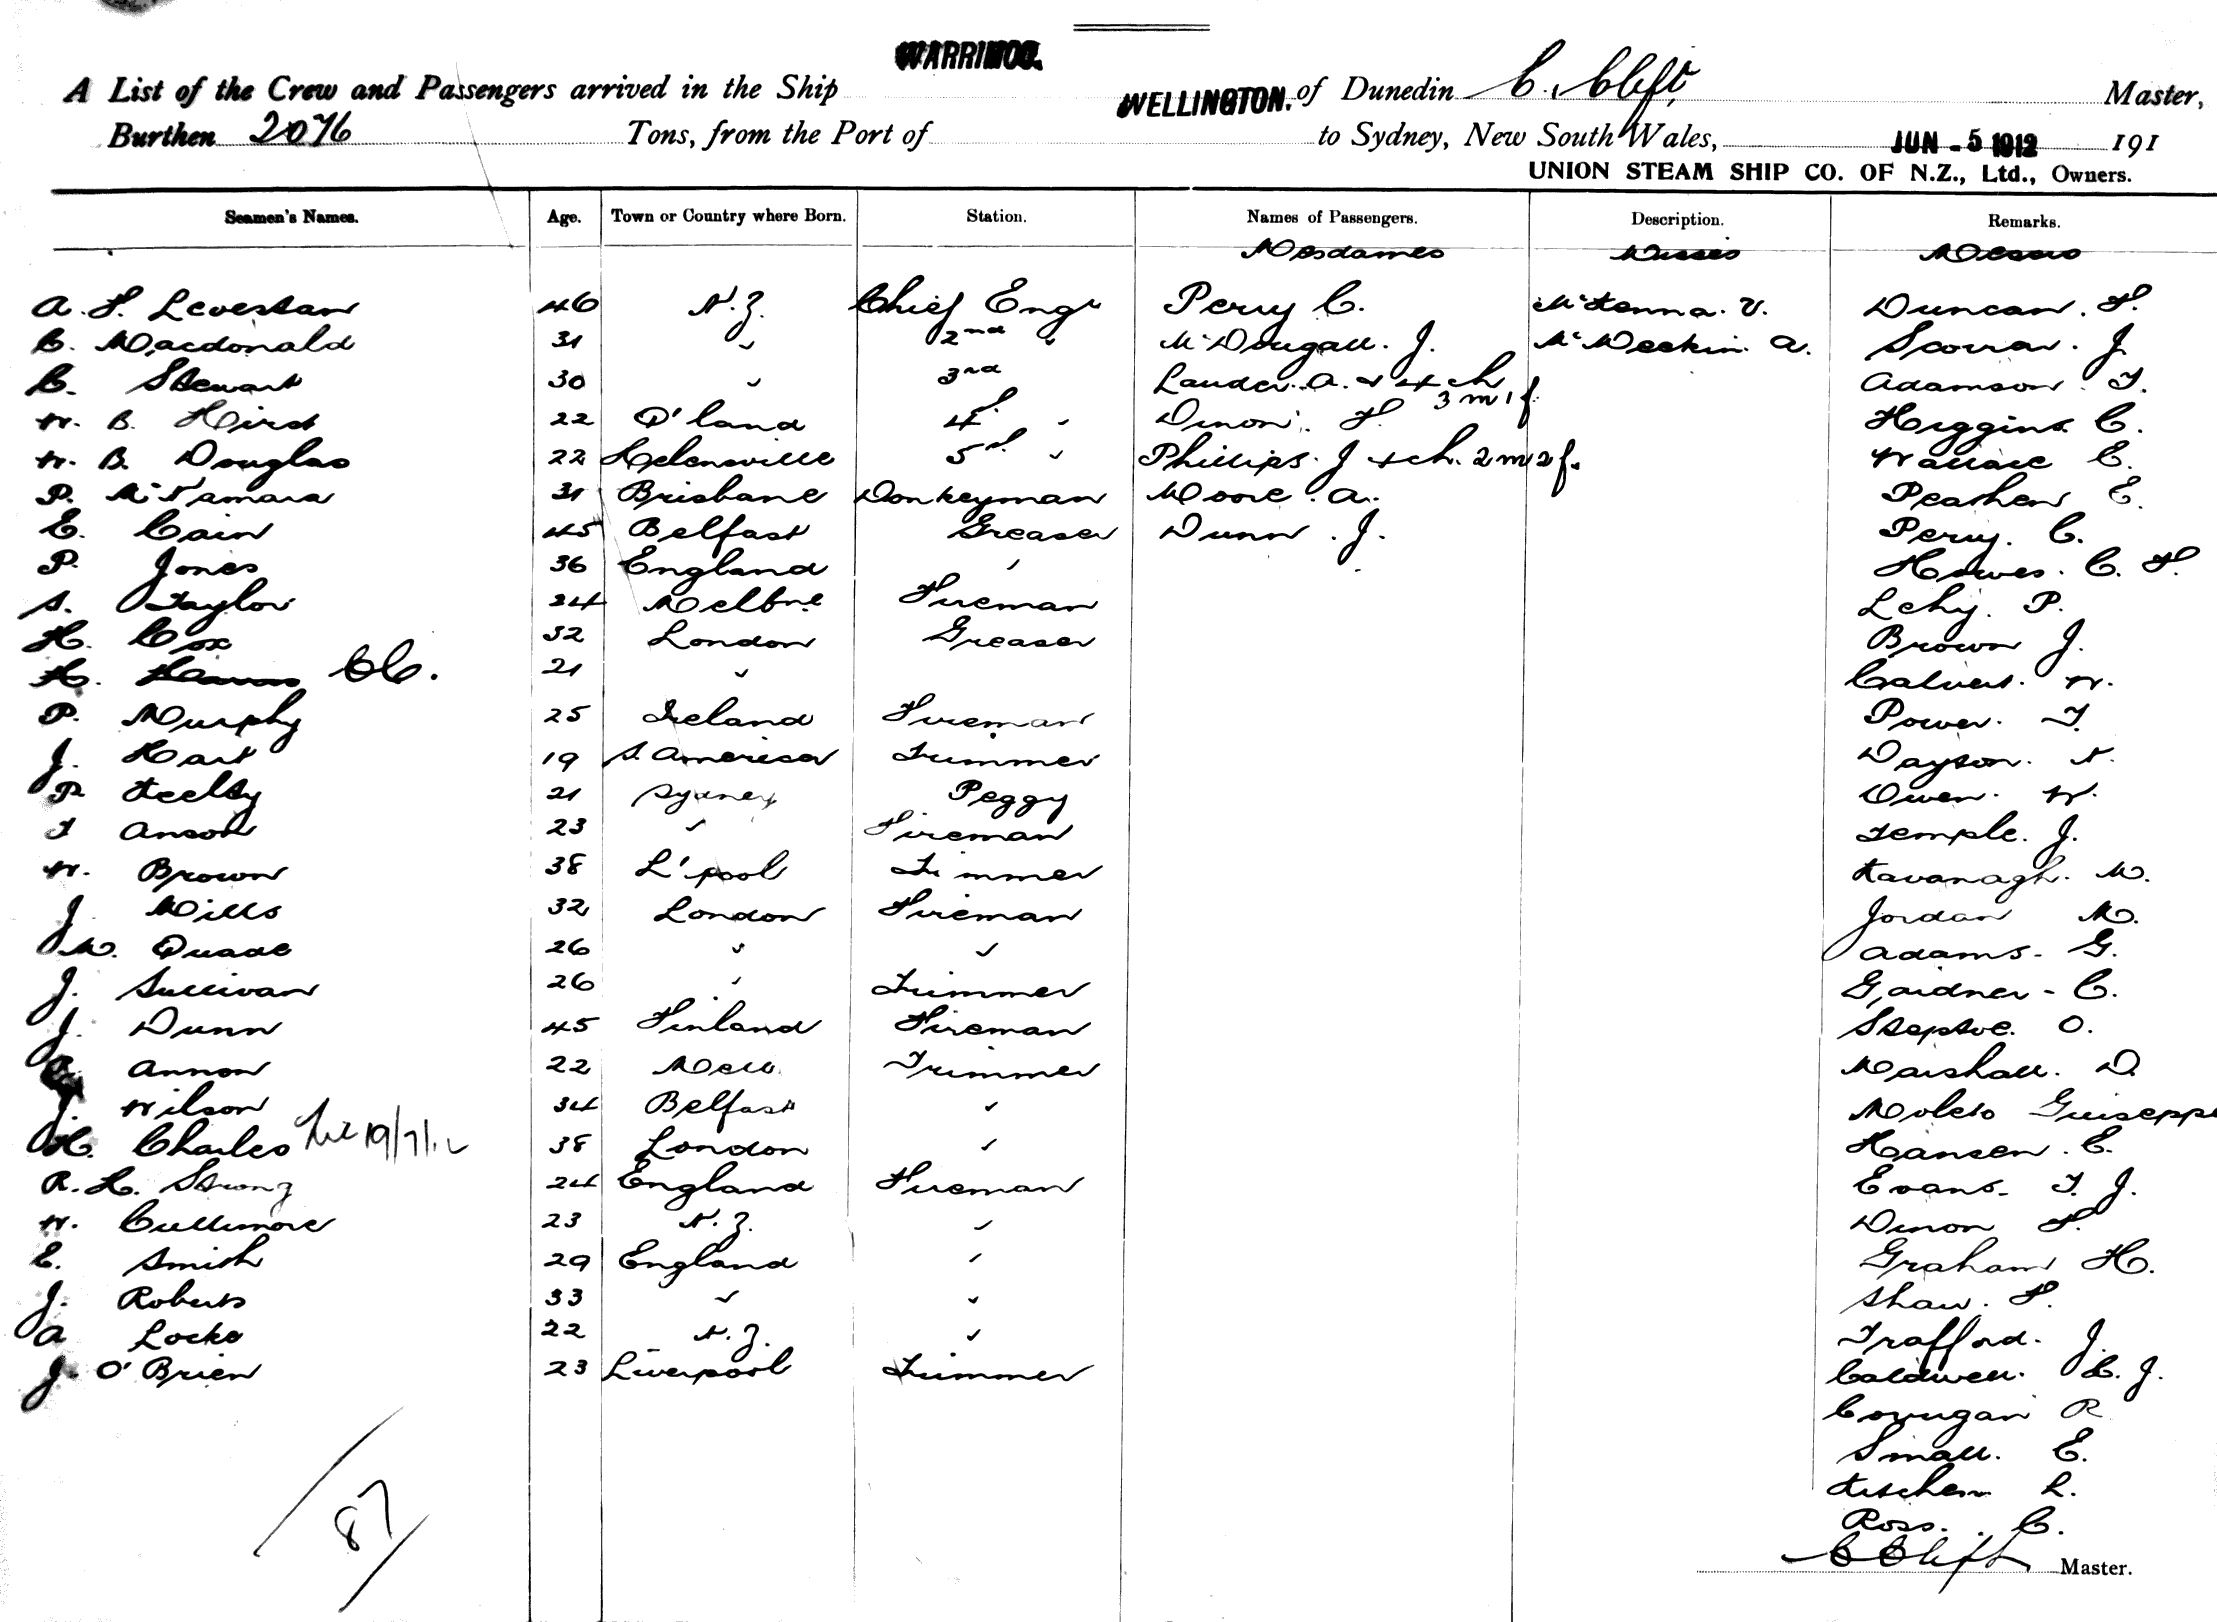 WARRIMOO.
A List of the Crew and Passengers arrived in the Ship of Dunedin C. Clift, Master,
WELLINGTON.
Burthen 2076 Tons, from the Port of to Sydney, New South Wales, JUN - 5 1912 191
UNION STEAM SHIP CO. OF N.Z., Ltd., Owners.
Seamen's Names. Age. Town or Country where Born. Station. Names of Passengers. Description. Remarks.
Mesdames Misses Messrs
A. F. Leversan 46 N.Z. Chief Engr Perry C. McKenna. V. Duncan. F.
C. Macdonald 31 " 2nd " McDougall. J. McMeekin. A. Scorrar. J.
C. Stewart 30 " 3rd Lauder. A. & 4 ch 3 m 1 f. Adamson. T.
W. B. Hird 22 Q'land 4th " Dinon. F. Higgins. C.
W. B. Douglas 22 Helensville 5th " Phillips. J 4 ch. 2 m 2 f. Wallace C.
P. McNamara 31 Brisbane Donkeyman Moore. A. E.
E. Cain 45 Belfast Greaser Dunn. J. Perry. C.
P. Jones 36 England " Howes. C. F.
S. Taylor 34 Melbne Fireman Lehy. P.
H. Cox 32 London Greaser Brown J.
H. 21 " Calvert. W.
P. Murphy 25 Ireland Fireman Power. T.
J. Hart 19 S. America Trimmer Dayson. N.
P. Keelty 21 Sydney Peggy Owen. W.
T Anson 23 " Fireman Temple. J.
W. Brown 38 L'pool Trimmer Kavanagh. M.
J. Mills 32 London Fireman Jordan M.
M. Quade 26 " " Adams. G.
J. Sullivan 26 " Trimmer Gardner - C.
J. Dunn 45 Finland Fireman Steptoe. O.
Annon 22 Melb. Trimmer Marshall. D.
J. Wilson 34 Belfast " Giuseppe
H. Charles 19/7/12 38 London " Hansen. C.
R. H. Strong 24 England Fireman Evans. T. J.
W. Cullimore 23 N.Z. " Dinon F.
E. Smith 29 England " Graham H.
J. Roberts 33 " " Shaw. F.
A Locke 22 N.Z. " Trafford. J.
J. O'Brien 23 Liverpool Trimmer Caldwell. C. J.
Corrigan R
Small. E.
Kitchen L.
Ross. C.
87
C Clift Master.